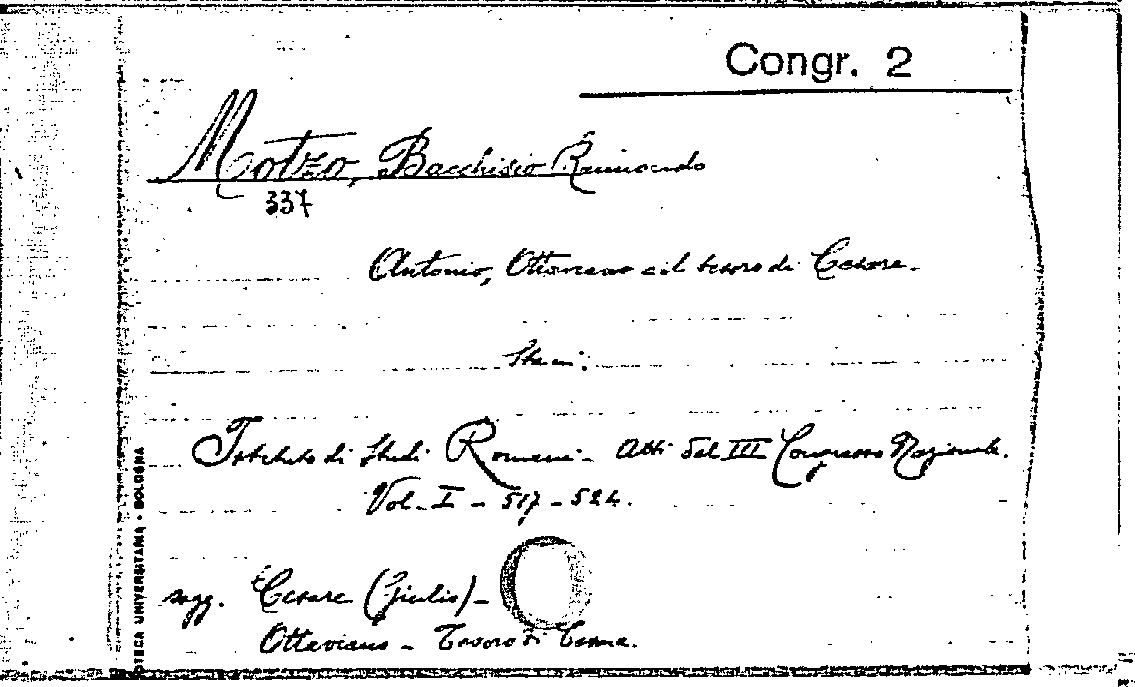 Congr. 2
Motzo, Bacchisio Raimondo
337
Antonio, Ottaviano e il tesoro di Cesare.
Istituto di Studi Romani - Atti del III Congresso Nazionale.
Vol. I - 517 - 524.
sogg. Cesare (Giulio) -
Ottaviano - Tesoro di Cesare.
OTECA UNIVERSITARIA - BOLOGNA